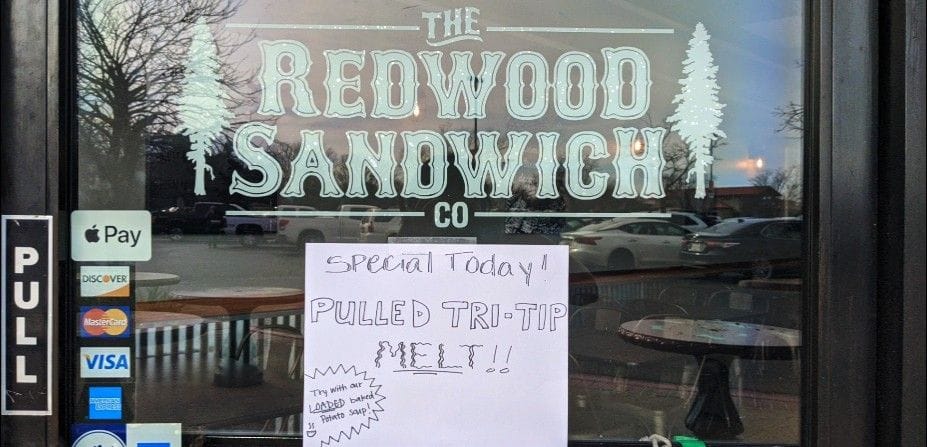 THE
REDWOOD
SANDWICH
CO
PULL
Pay
DISCOVER
MasterCard
VISA
AMERICAN EXPRESS
Special Today!
PULLED TRI-TIP
MELT!!
Try with our
LOADED baked
Potato Soup!